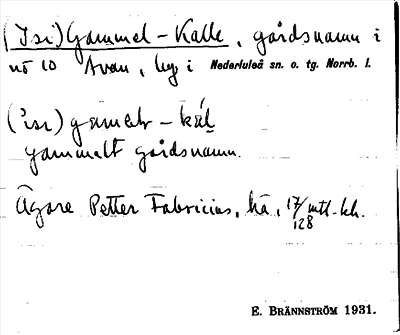 (Isi) Gammel-Kalle, gårdsnamn i
nö 10 Avan, by i Nederluleå sn. o. tg. Norrb. l.
gammalt gårdsnamn.
Ägare Petter Fabricius, ha, 17/128 mtl. kh.
E. BRÄNNSTRÖM 1931.